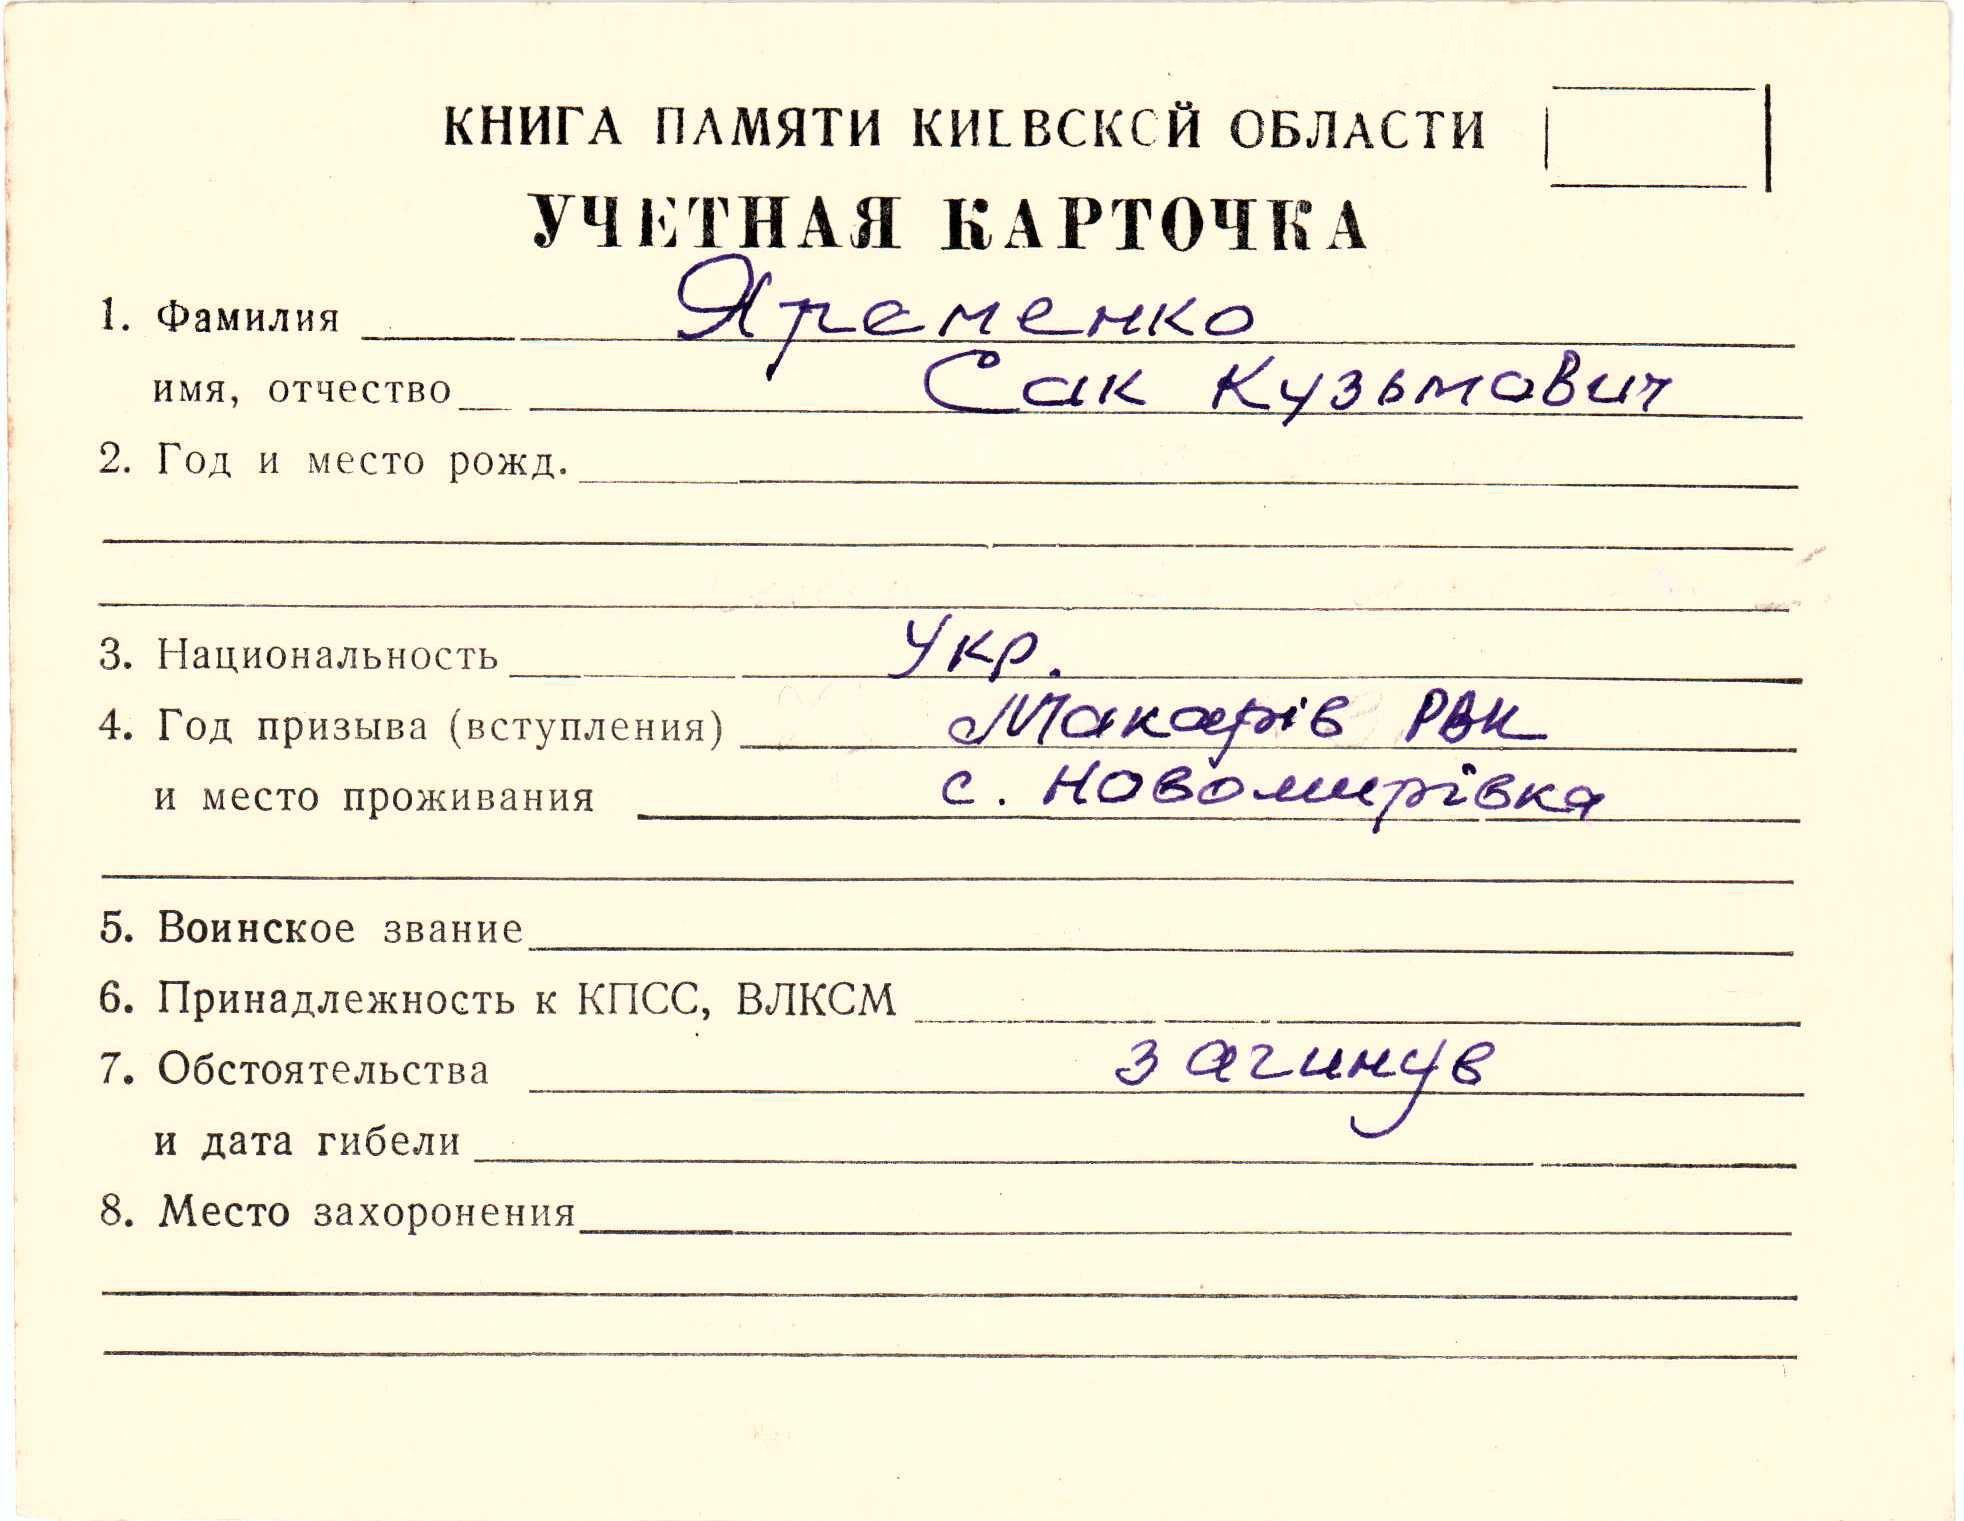 КНИГА ПАМЯТИ КИЕВСКОЙ ОБЛАСТИ
УЧЕТНАЯ КАРТОЧКА
1. Фамилия Яременко
имя, отчество Сак Кузьмович
2. Год и место рожд.
3. Национальность Укр.
4. Год призыва (вступления) Макарів РВК
и место проживания с. Новомирівка
5. Воинское звание
6. Принадлежность к КПСС, ВЛКСМ
7. Обстоятельства загинув
и дата гибели
8. Место захоронения